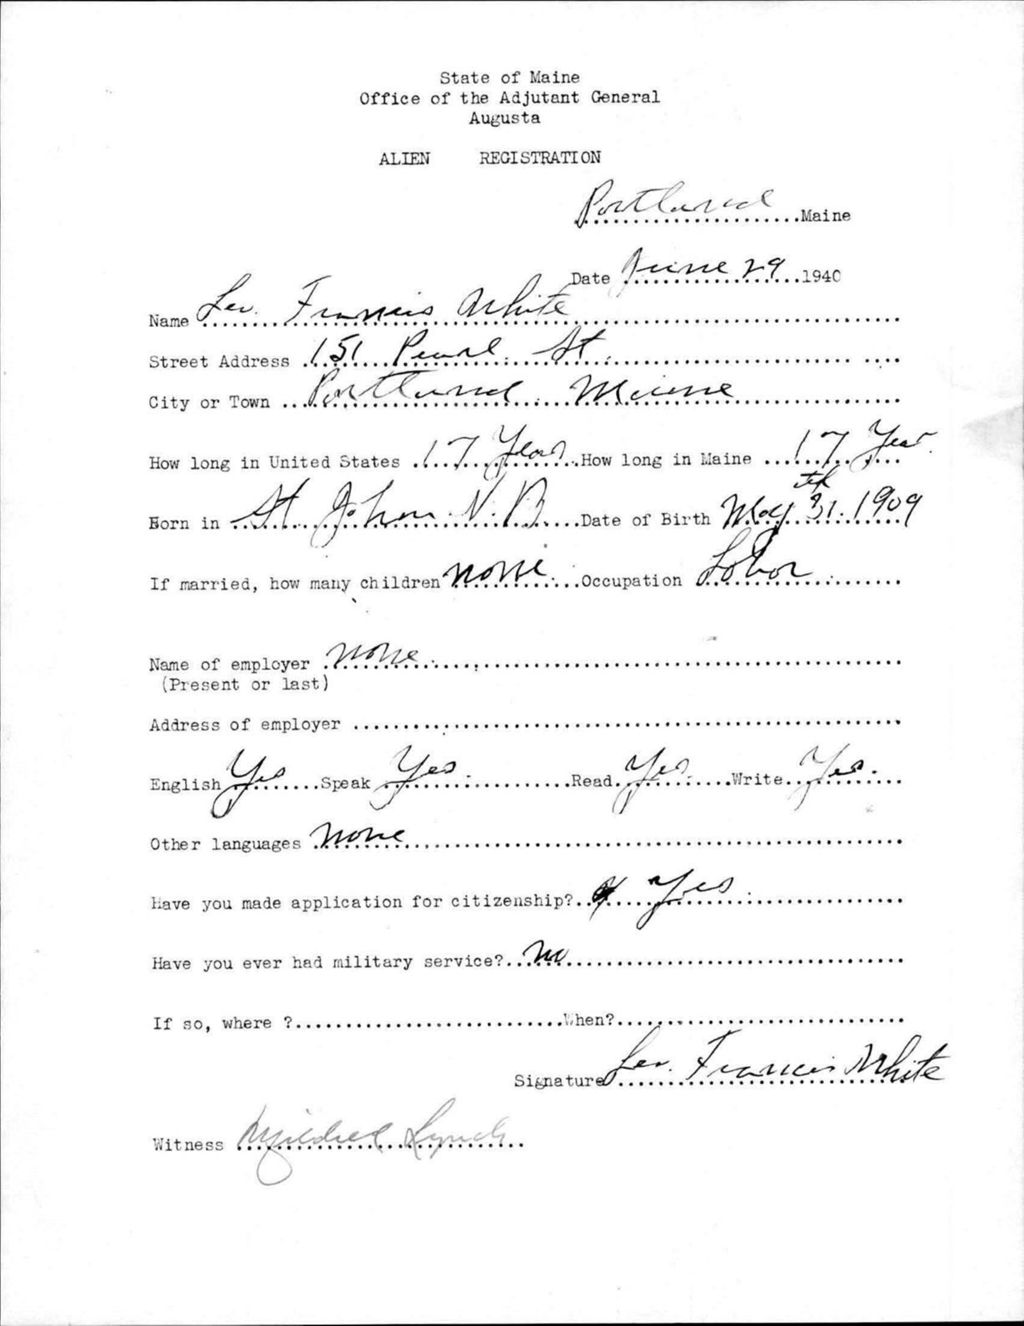 State of Maine
Office of the Adjutant General
Augusta
ALIEN REGISTRATION
Portland Maine
Date June 29 1940
Name Leo. Francis White
Street Address 151 Pearl St.
City or Town Portland Maine
How long in United States 17 Years How long in Maine 17 Year
Born in St John N. B Date of Birth May 31th 1909
If married, how many children none Occupation Labor
Name of employer none
(Present or last)
Address of employer
English Yes Speak Yes Read Yes Write Yes.
Other languages none
Have you made application for citizenship? Yes
Have you ever had military service? No
If so, where ? When?
Signature Leo. Francis White
Witness Mildred Lynch